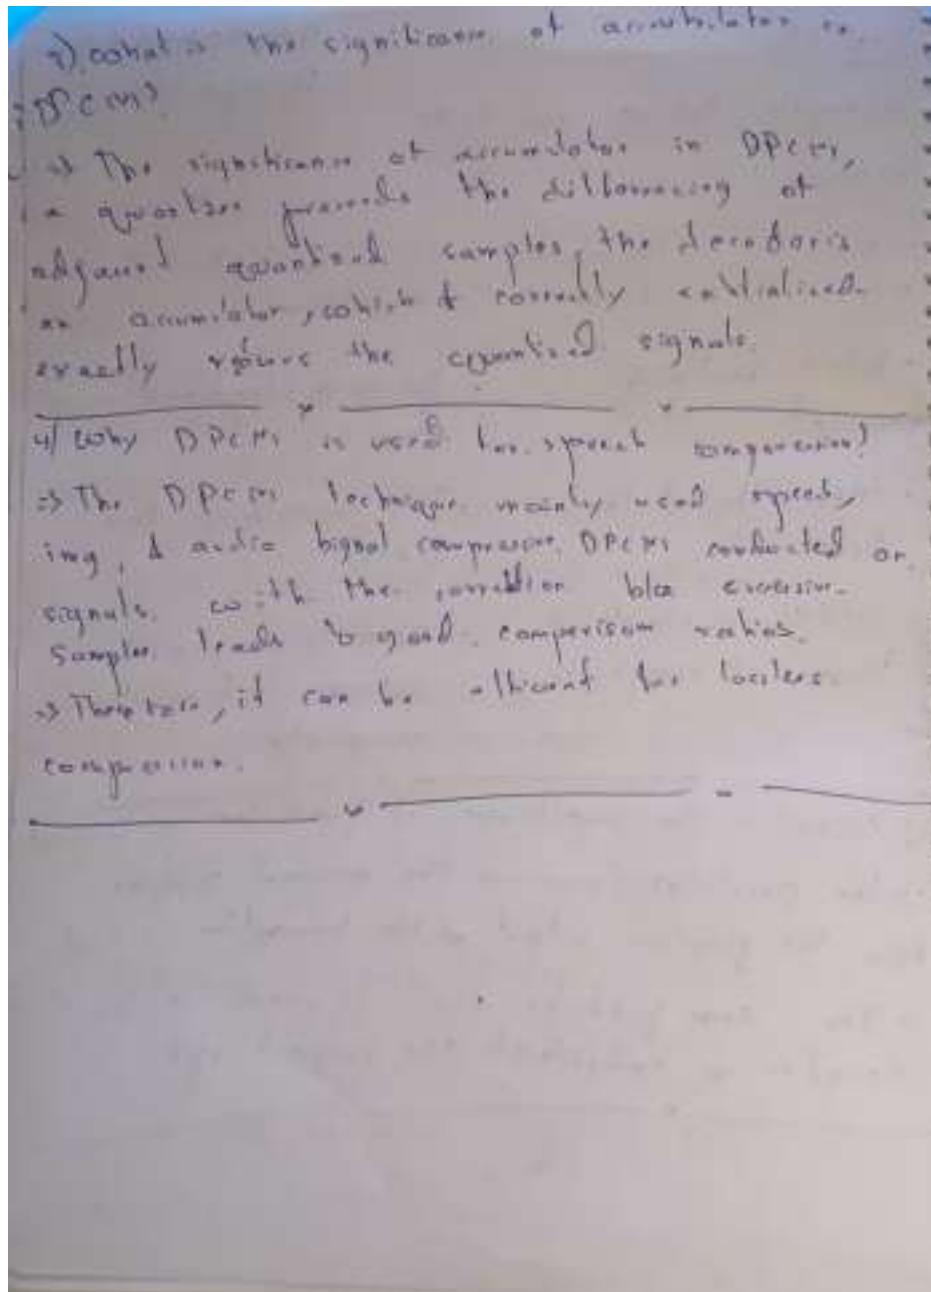 what is the significance of accumulator in
DPCM?
=> The significance of accumulator in DPCM,
a quantizer the differencing of
quantized samples, the decoder is
an accumulator, which correctly initialised
exactly the quantized signals.
4) Why DPCM is used for speech compression?
=> The DPCM technique mainly used speech,
img, & audio signal compression. DPCM conducted on
signals with the correlation b/w
samples leads to good comparison ratios.
=> Therefore, it can be efficient for
compression.